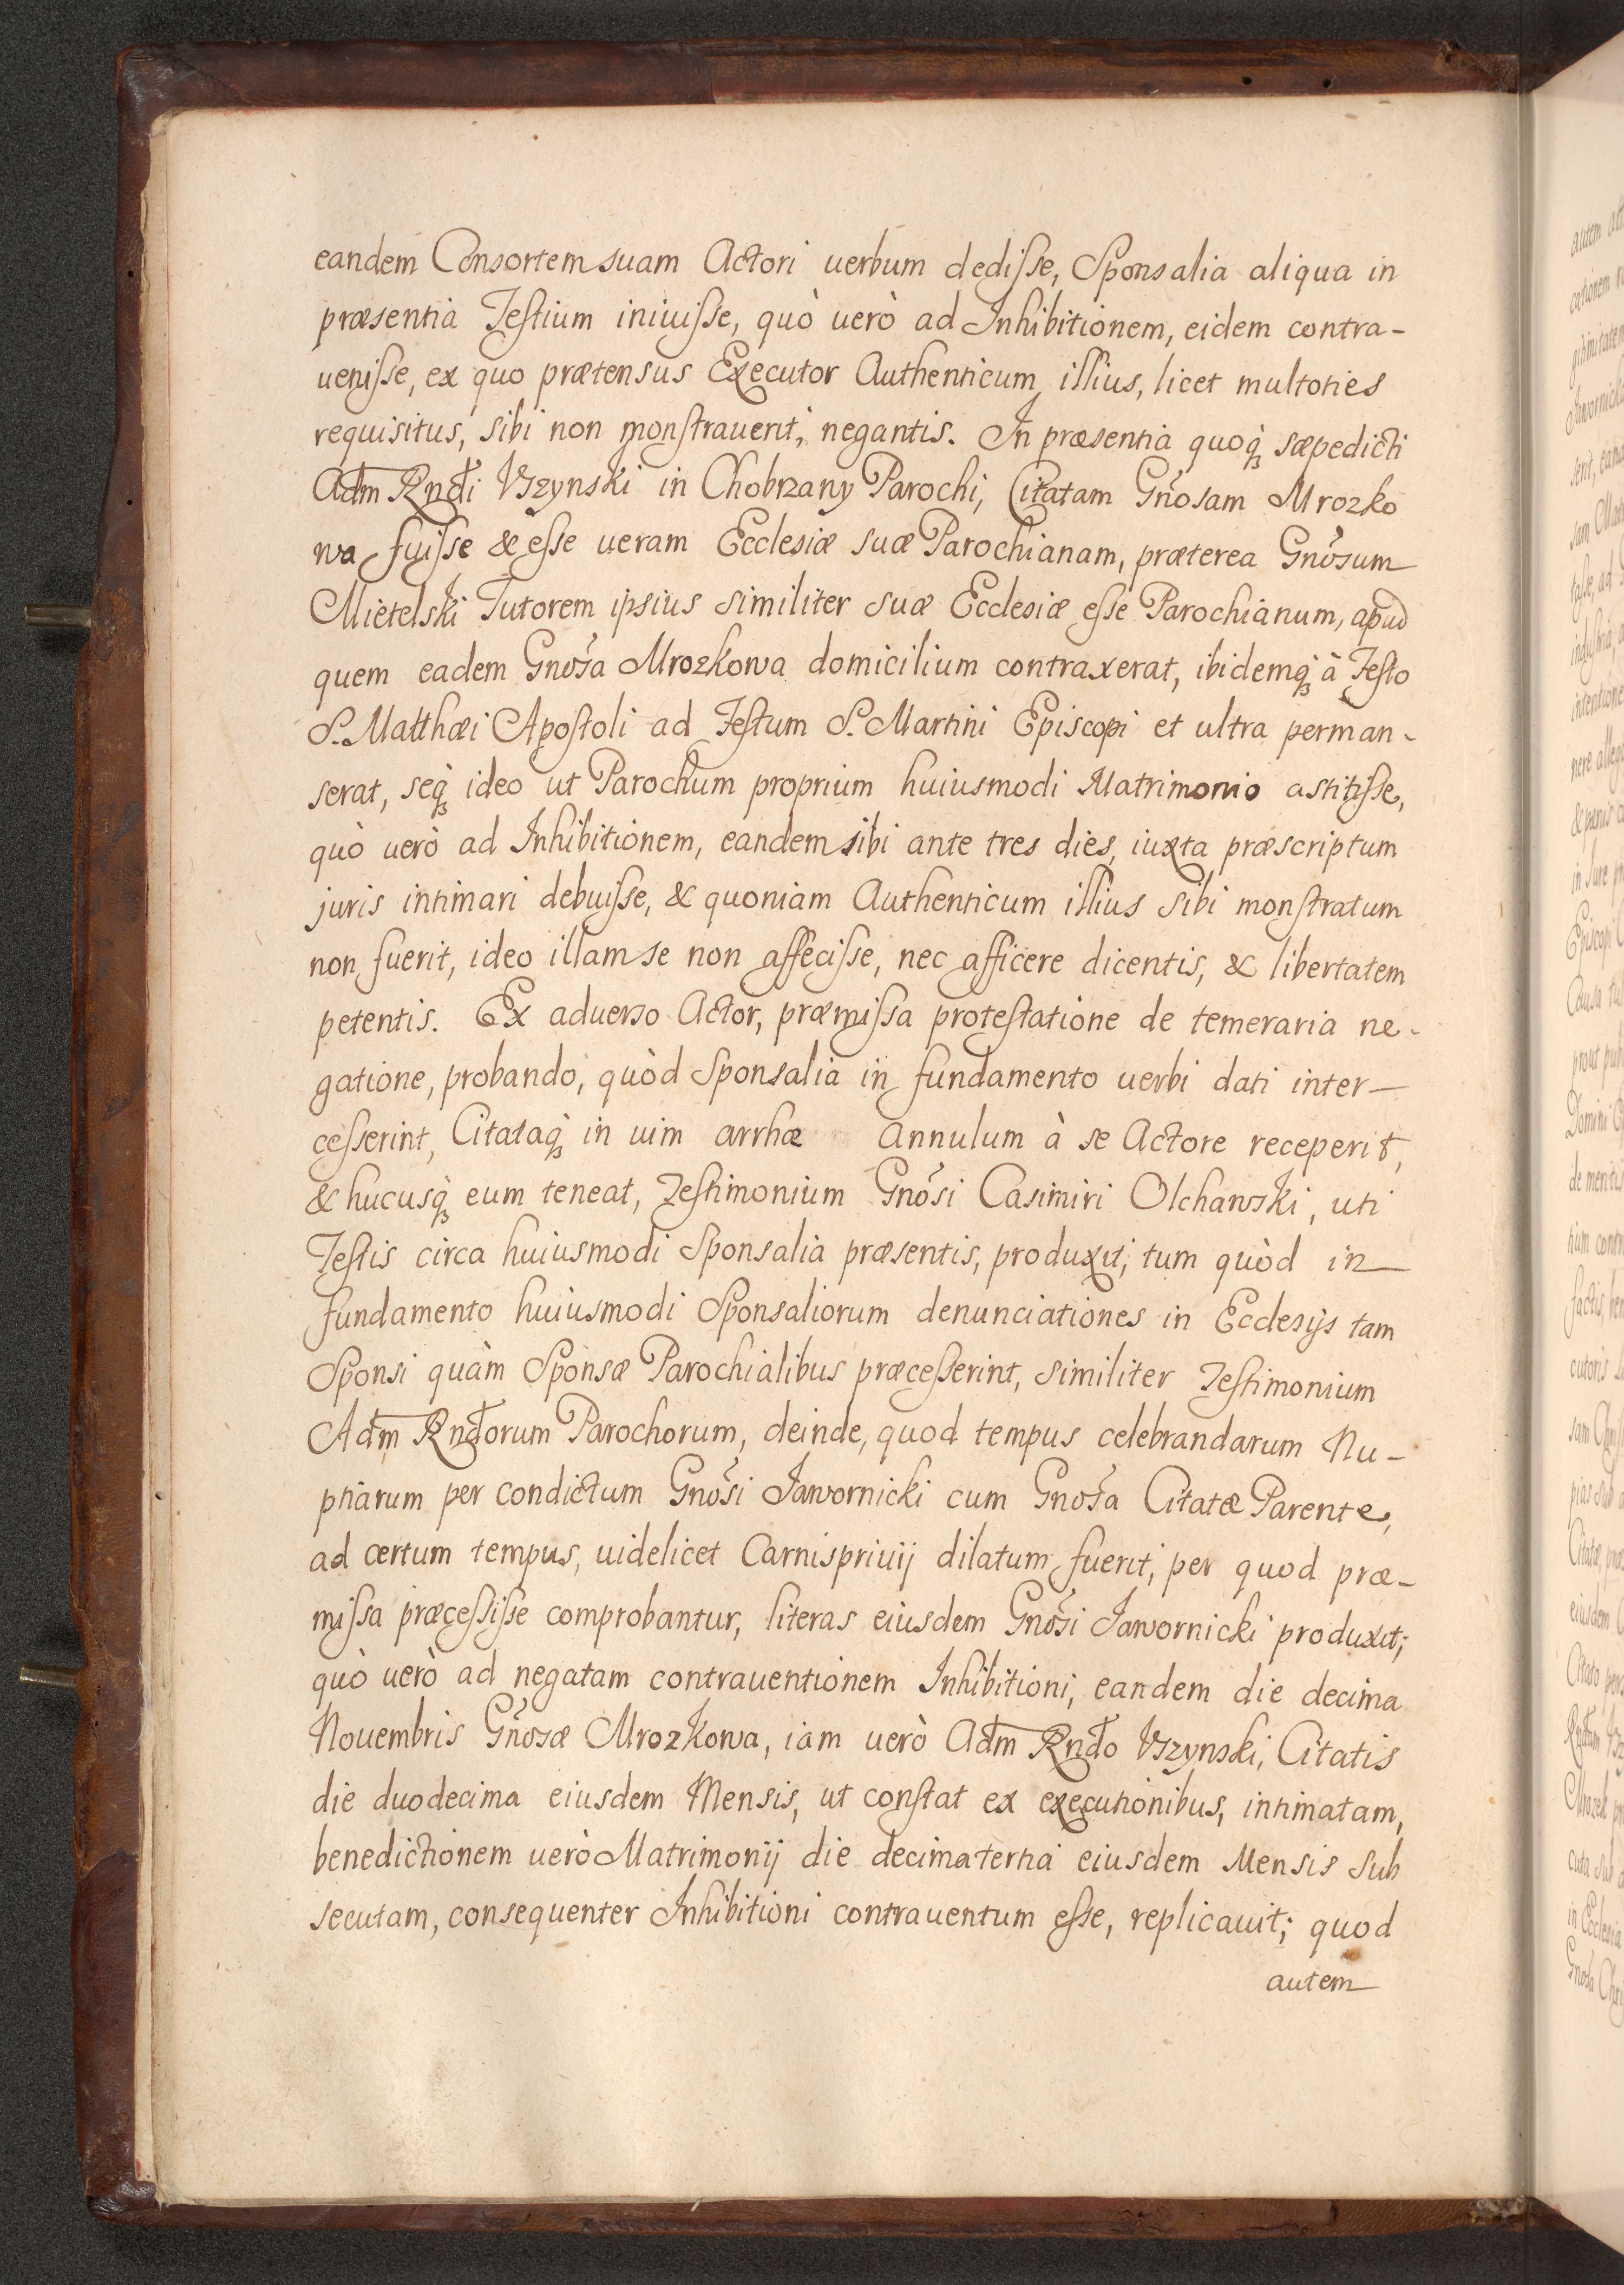 eandem Consortem suam Actori uerbum dedisse, Sponsalia aliqua in
præsentia Testium iniuisse, quò uerò ad Inhibitionem, eidem contra-
uenisse, ex quo prætensus Executor Authenticum illius, licet multoties
requisitus, sibi non monstrauerit, negantis. In præsentia quoq₃ sæpedicti
Adm Rndi Uszynski in Chobrzany Parochi, Citatam Gnosam Mrozko
wa fuisse & esse ueram Ecclesiæ suæ Parochianam, præterea Gnosum
Mietelski Tutorem ipsius similiter suæ Ecclesiæ esse Parochianum, apud
quem eadem Gnosa Mrozkowa domicilium contraxerat, ibidemq₃ à Festo
S. Matthæi Apostoli ad Festum S. Martini Episcopi et ultra perman-
serat, seq₃ ideo ut Parochum proprium huiusmodi Matrimonio astitisse,
quò uerò ad Inhibitionem, eandem sibi ante tres dies, iuxta præscriptum
juris intimari debuisse, & quoniam Authenticum illius sibi monstratum
non fuerit, ideo illam se non affecisse, nec afficere dicentis, & libertatem
petentis. Ex aduerso Actor, præmissa protestatione de temeraria ne-
gatione, probando, quòd Sponsalia in fundamento uerbi dati inter-
cesserint, Citataq₃ in uim arrhæ Annulum à se Actore receperit,
& hucusq₃ eum teneat, Testimonium Gnosi Casimiri Olchawski, uti
Testis circa huiusmodi Sponsalia præsentis, produxit; tum quòd in
fundamento huiusmodi Sponsaliorum denunciationes in Ecclesijs tam
Sponsi quàm Sponsæ Parochialibus præcesserint, similiter Testimonium
Adm Rndorum Parochorum, deinde, quod tempus celebrandarum Nu-
ptiarum per condictum Gnosi Jawornicki cum Gnosa Citatæ Parente,
ad certum tempus, uidelicet Carnispriuij dilatum fuerit, per quod præ-
missa præcessisse comprobantur, literas eiusdem Gnosi Jawornicki produxit;
quò uerò ad negatam contrauentionem Inhibitioni, eandem die decima
Nouembris Gnosæ Mrozkowa, iam uerò Adm Rndo Uszynski, Citatis
die duodecima eiusdem Mensis, ut constat ex executionibus, intimatam,
benedictionem uerò Matrimonij die decimatertia eiusdem Mensis sub
secutam, consequenter Inhibitioni contrauentum esse, replicauit; quod
autem